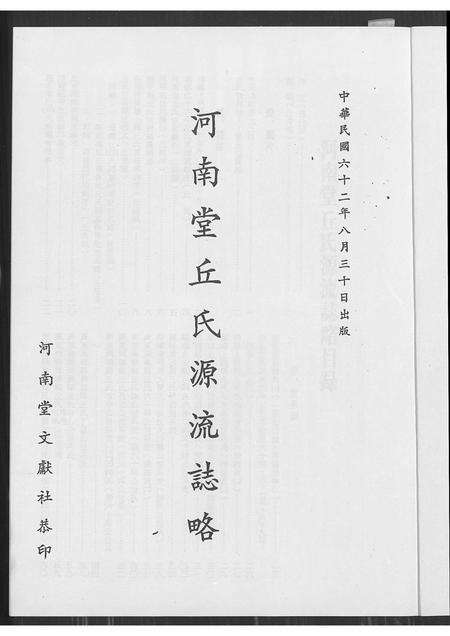 中華民國六十二年八月三十日出版
河南堂丘氏源流誌略
河南堂文獻社恭印